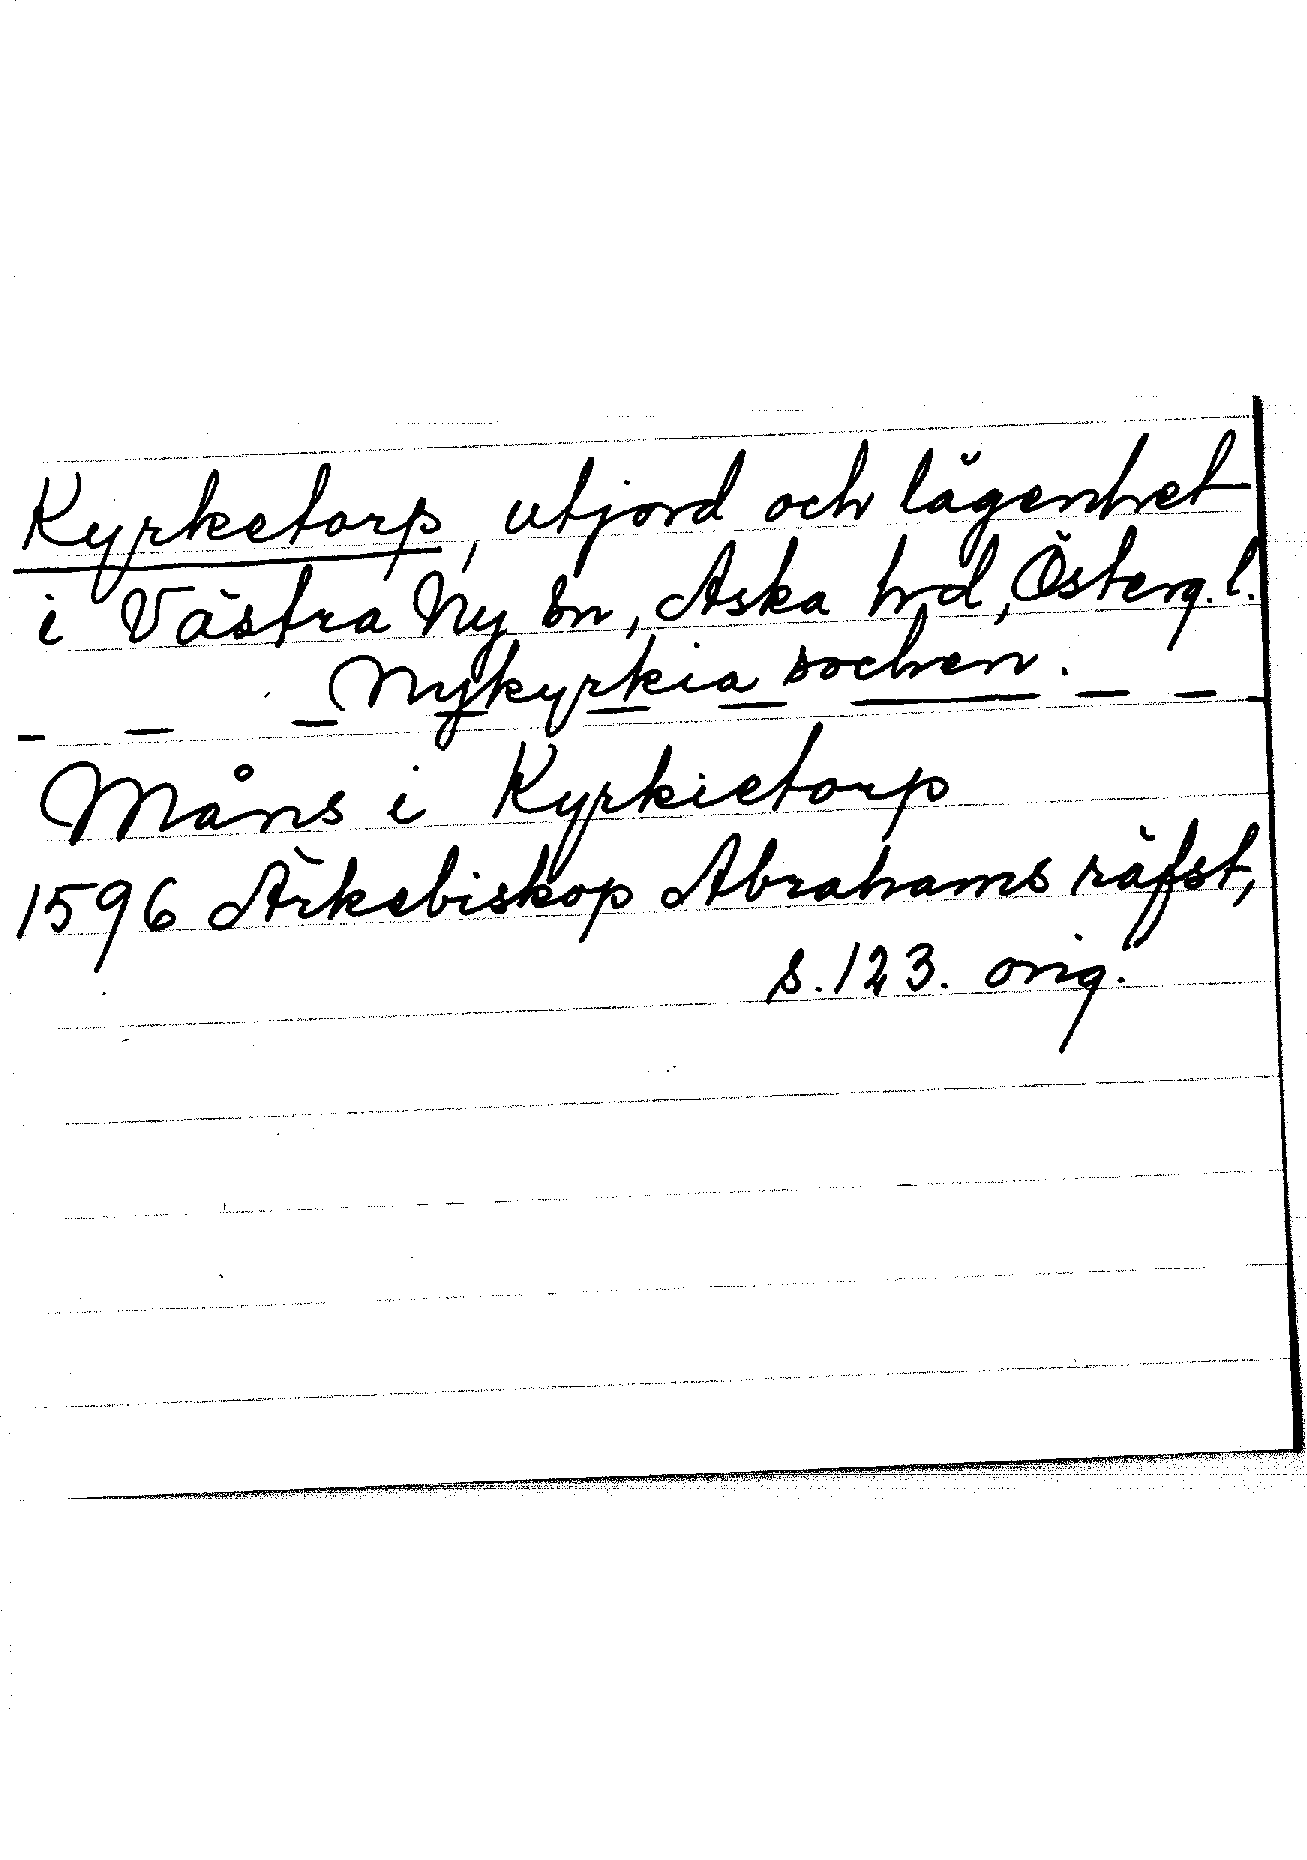 Kyrketorp, utjord och lägenhet
i Västra Ny sn, Aska hrd, Österg.l.
Nykyrkia sochen.
Måns i Kyrkietorp
1596 Ärkebiskop Abrahams räfst,
s. 123. orig.